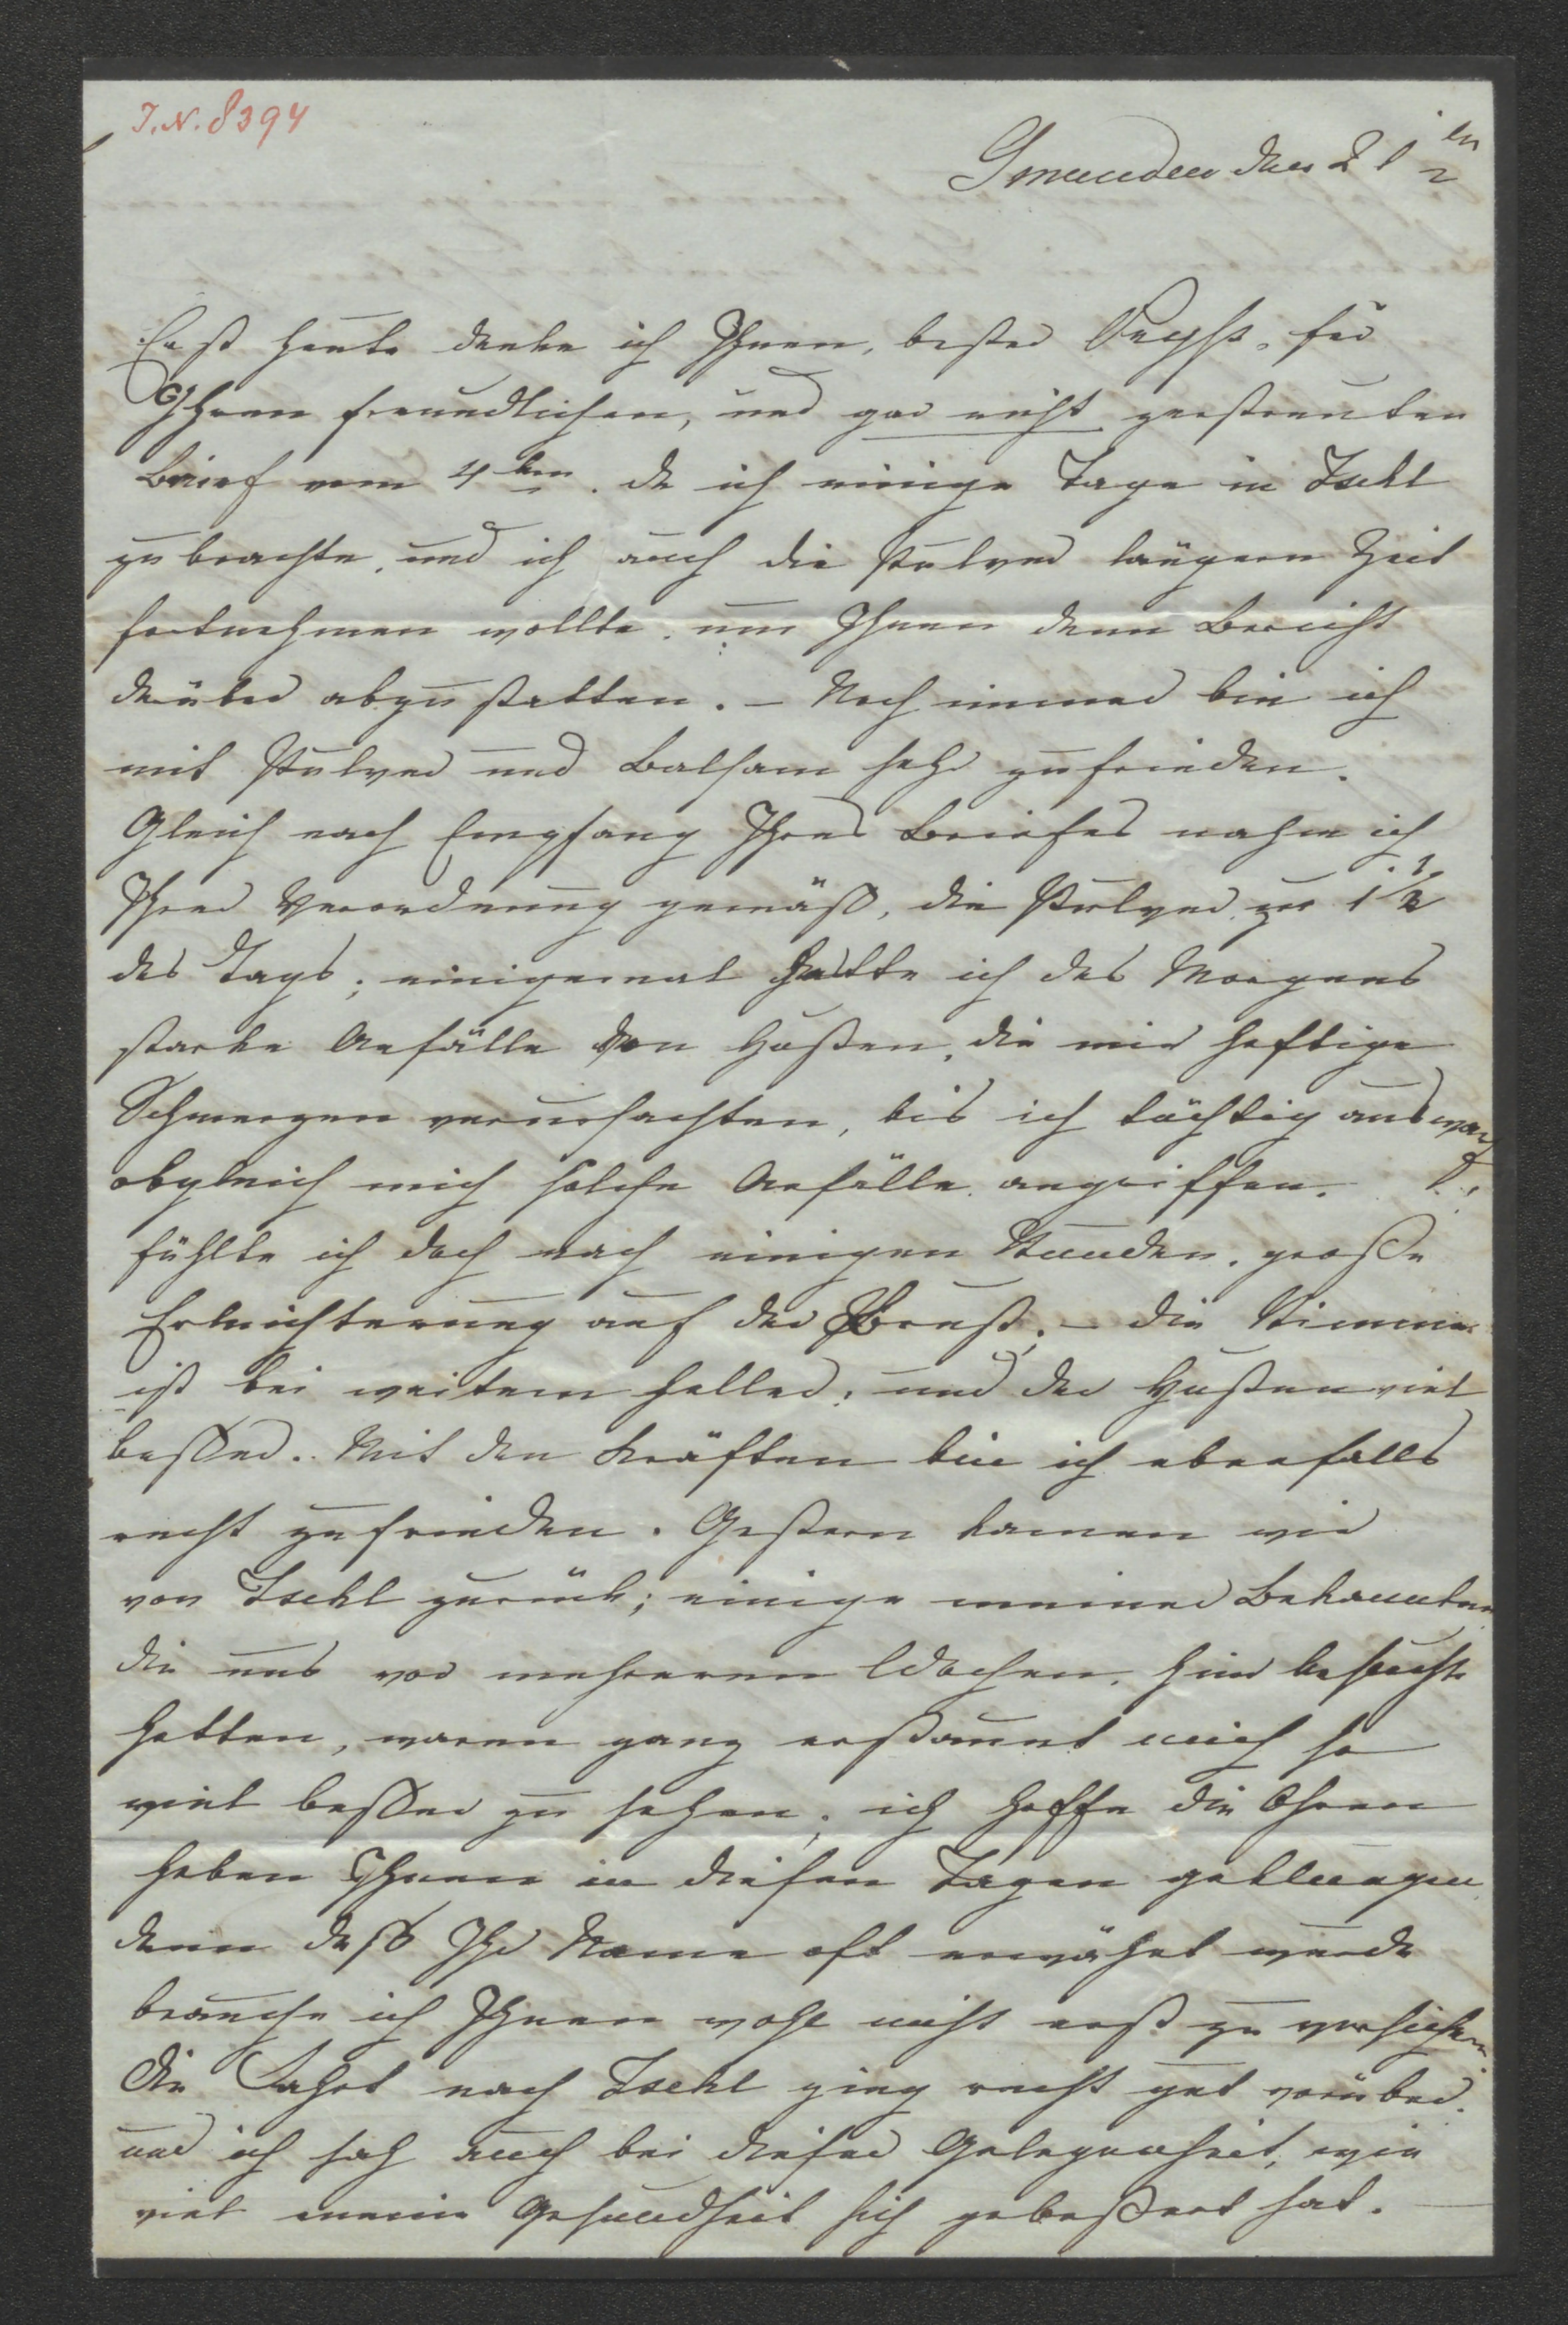 I.N. 8394
Gmunden den 21ten
Erst heute danke ich Ihnen, bester für
Ihren freundlichen, und gar nicht zerstreuten
Brief vom 4ten. da ich einige Tage in Ischl
zubrachte, und ich auch die Pulver längere Zeit
fortnehmen wollte, um Ihnen dann Bericht
darüber abzustatten. – Noch immer bin ich
mit Pulver und Balsam sehr zufrieden.
Gleich nach Empfang Ihres Briefes nahm ich
Ihrer Verordnung gemäß, die Pulver zu 1 1/2
des Tags; einigemal hatte ich des Morgens
starke Anfälle von Husten, die mir heftige
Schmerzen verursachten, bis ich tüchtig auswarf
obgleich mich solche Anfälle angriffen,
fühlte ich doch nach einigen Stunden, große
Erleichterung auf der Brust. – die Stimme
ist bei weitem heller, und der Husten viel
besser. Mit den Kräften bin ich ebenfalls
recht zufrieden. Gestern kamen wir
von Ischl zurück; einige meiner Bekannten
die uns vor mehreren Wochen, hier besucht
hatten, waren ganz erstaunt mich so
viel besser zu sehen; ich hoffe die Ohren
haben Ihnen in diesen Tagen geklungen
denn daß Ihr Name oft erwähnt wurde
brauche ich Ihnen wohl nicht erst zu versichern.
Die Fahrt nach Ischl ging recht gut vorüber.
und ich sah auch bei dieser Gelegenheit, wie
viel meine Gesundheit sich gebessert hat. –